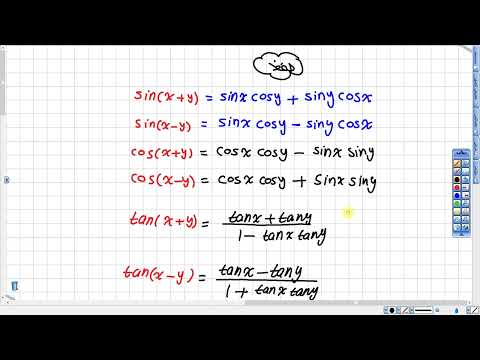 sin(x+y) = sinx cosy + siny cosx
sin(x-y) = sinx cosy - siny cosx
cos(x+y) = cosx cosy - sinx siny
cos(x-y) = cosx cosy + sinx siny
tan(x+y) = tanx + tany / 1 - tanx tany
tan(x-y) = tanx - tany / 1 + tanx tany